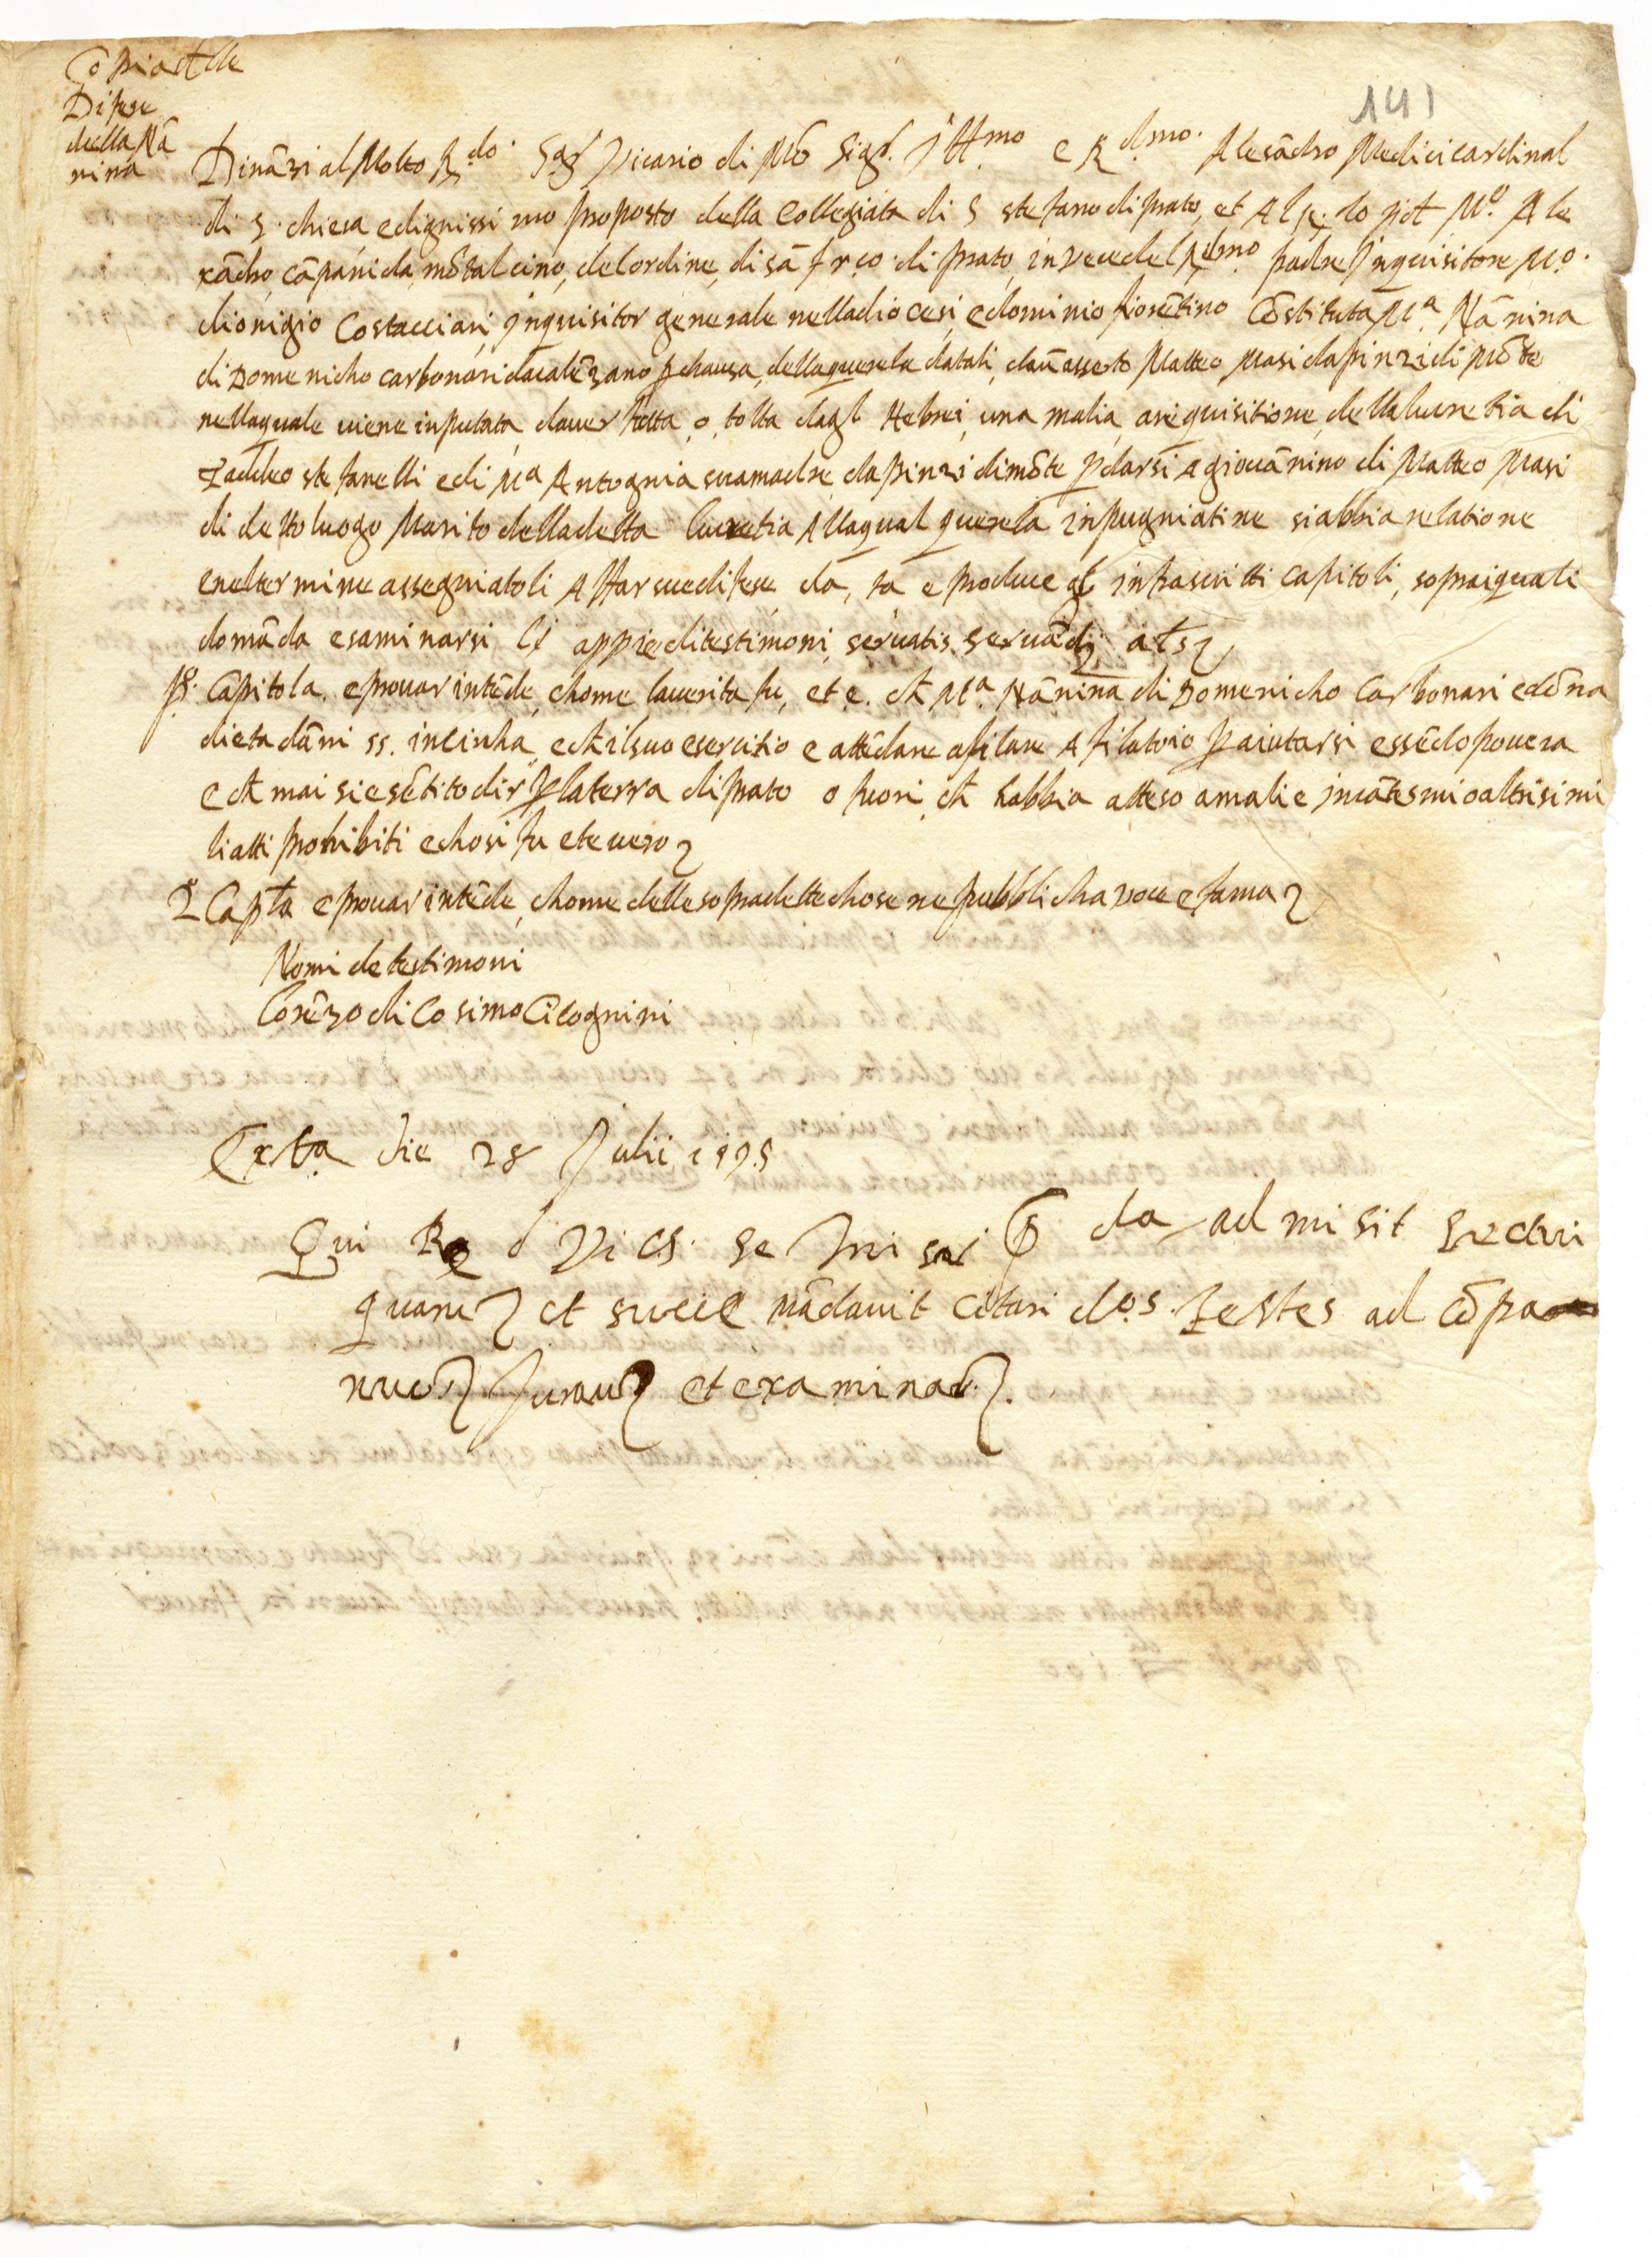 Cõpia delle
Difese
della Nã
nina
141
Dinãzi al Molto R.do Sigr Vicario di Mõ Sigr. Jll.mo e R.dmo. Alesãdro Medici cardinal
di S. chiesa e dignissimo proposto della Collegiata di S stefano di prato, et Al Re. do pdt M.o Ale
xãdro cãpani da mõtalcino, del ordine, di sã frco. di prato in vece del Rdmo padre Jnquisitore M.o
dionigio Costacciari Jnquisitor generale nella diocesi e dominio fiorẽtino Cõstituta M.a Nãnina
di Domenicho carbonari da calẽzano p chausa, della querela datali, da ũ asserto Matteo Masi da pinzi di mõte
nella quale viene inputata d aver fatta, o, tolta dagl Hebrei, una malia, a requisitione, della lucretia di
Taddeo stefanelli e di M.a Antognia sua madre da pinzi di mõte p darsi A giovãnino di Matteo Masi
di detto luogo Marito della detta lucretia Alla qual querela inpugniatine si abbia relatione
e nel termine assegniatoli A ffar sue difese da, fa e produce gl infrascritti capitoli, sopra i quali
domãda esaminarsi li appie di testimoni, servatis servãdis
p.o Cãpitola, e provar intẽde, chome la verita fu, et e. ch M.a Nãnina di Domenicho Carbonari e dõna
di eta dãni 55. in cinha, e ch il suo esercitio e attẽdare a filare A filatoio p aiutarsi essẽdo povera
e ch mai si e sẽtito dir p la terra di prato o fuori, ch habbia atteso a malie incãtesmi o altri simi
li atti prohibiti e chosi fu et e vero
2.o Capta e provar intẽde, chome delle sopradette chose ne pubblicha voce e fama
Nomi de testimoni
Lorẽzo di Cosimo Cicognini
Exta die 28 Julii
Qui R d Vics. se da admisit
et mãdavit citari dos. testes ad cõpa
et examinad.